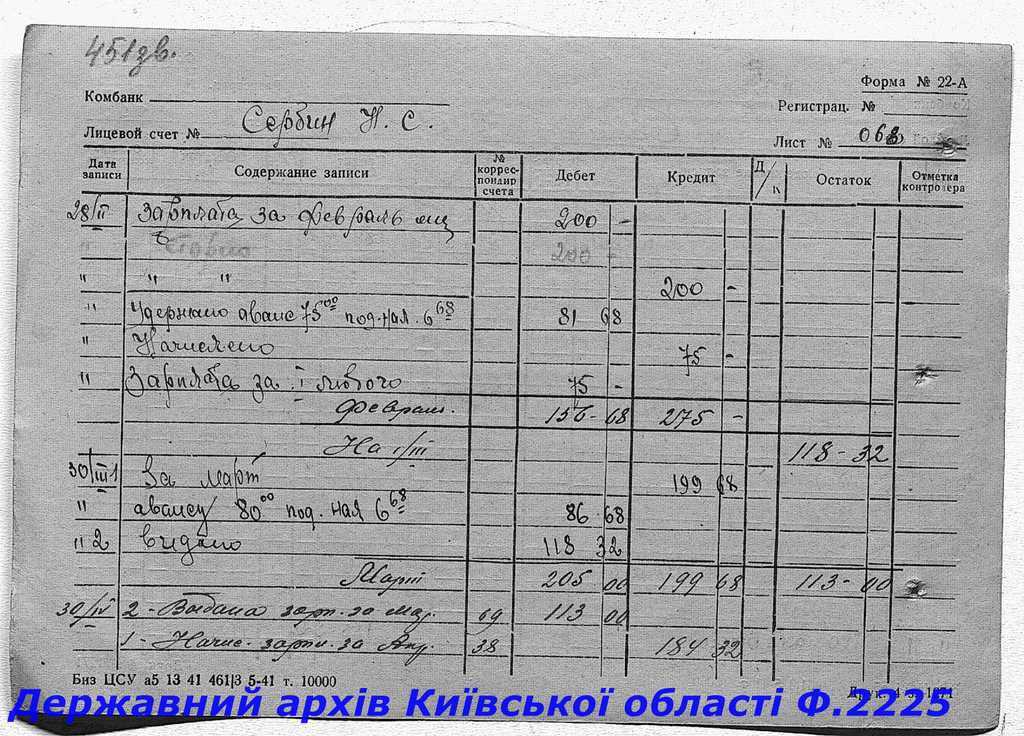 451зв.
Форма № 22-А
Комбанк
Регистрац. №
Лицевой счет № Сербин Н. С.
Лист № 068
Дата записи Содержание записи № коррес-пондир счета Дебет Кредит Д/К Остаток Отметка контролера
28/II Зарплата за февраль м-ц 200 -
" 200 -
" " " 200 -
" Удержано аванс 75 00 под. нал. 6 68 81 68
" Начислено 75 -
" Зарплата за I лютого 75 -
Февраль. 156 - 68 275 -
На 1/III 118 - 32
30/III 1 За март 199 68
" авансу 80 00 под. нал 6 68 86 68
" 2 видано 118 32
Март 205 00 199 68 113 - 00
30/IV 2 - Выдана зарп. за мар. 69 113 00
1 - Начис. зарпл. за Апр. 38 184 32
Биз ЦСУ а5 13 41 461|3 5-41 т. 10000
Державний архів Київської області Ф.2225